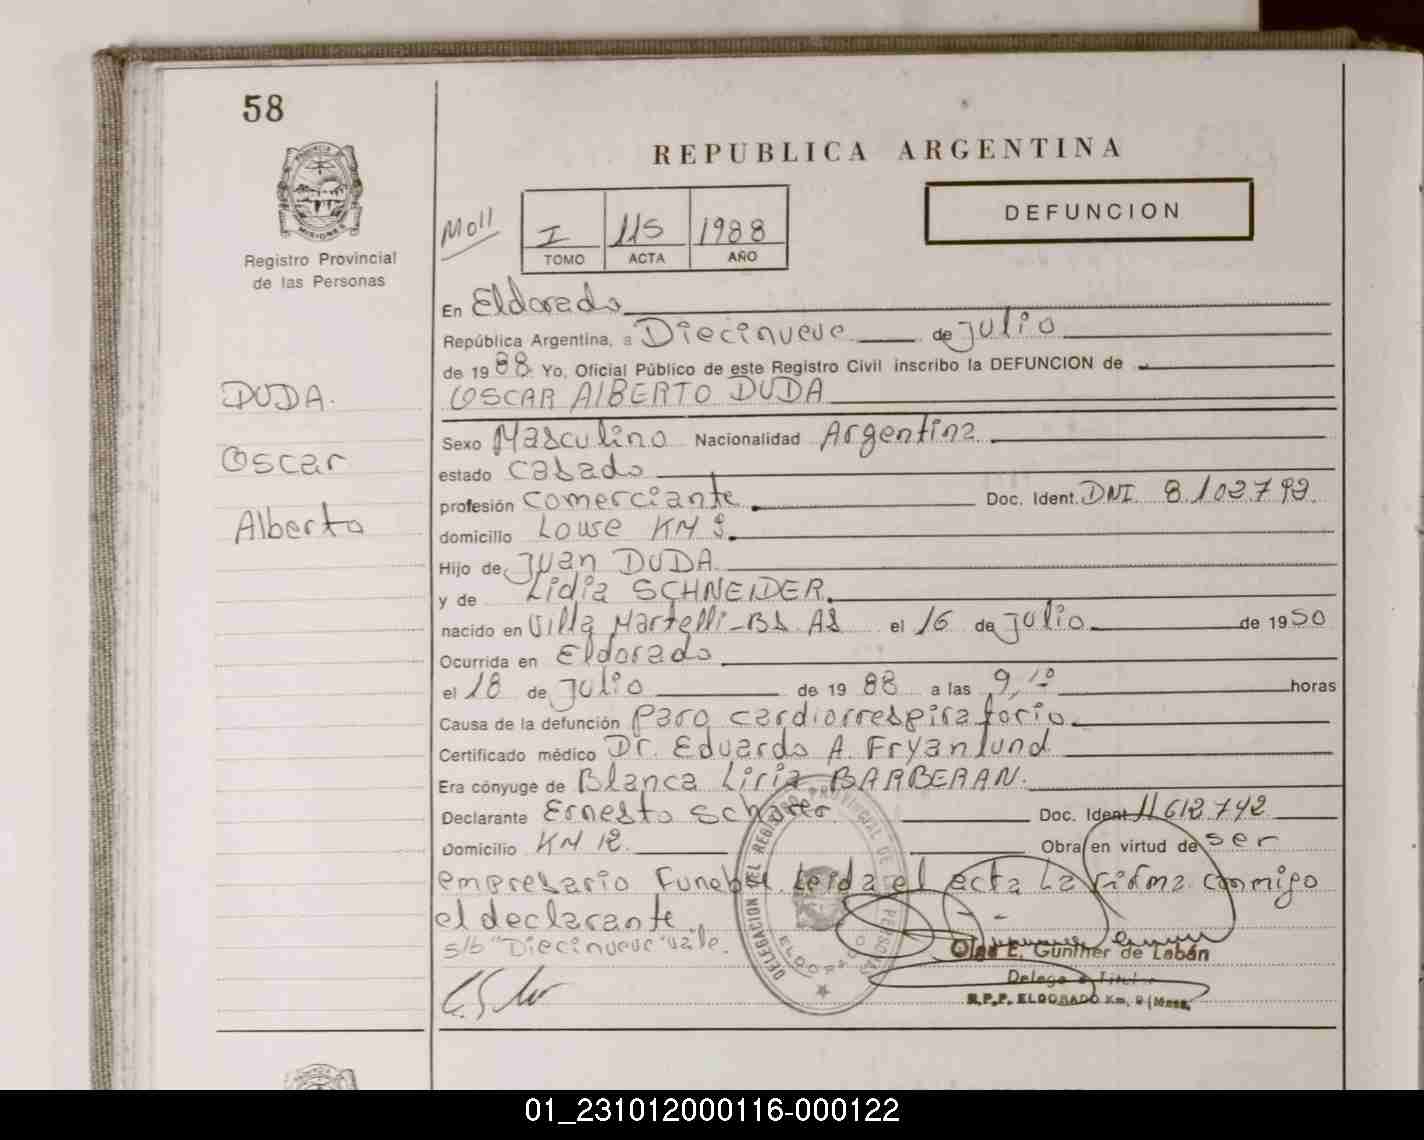 58
REPUBLICA ARGENTINA
DEFUNCION
Moll
I 115 1988
TOMO ACTA AÑO
Registro Provincial
de las Personas
DUDA.
Oscar
Alberto
En Eldorado
República Argentina, a Diecinueve de Julio
de 1988 Yo, Oficial Público de este Registro Civil inscribo la DEFUNCION de
OSCAR AlBERTO DUDA
Sexo Masculino Nacionalidad Argentina
estado casado
profesión comerciante Doc. Ident. DNI 8.102.792
domicilio KM
Hijo de Juan DUDA
y de Lidia SCHNEIDER.
nacido en Villa Martelli-Bs As el 16 de Julio de 1950
Ocurrida en Eldorado
el 18 de Julio de 1988 a las horas
Causa de la defunción paro cardiorrespiratorio
Certificado médico Dr. Eduardo A. Fryanlund
Era cónyuge de Blanca Liria
Declarante Ernesto Doc. Ident. 11.612.742
Domicilio KM 12. Obra en virtud de ser
empresario Funebre. Leida el acta La firma conmigo
el declarante.
s/b "Diecinueve" vale.
DELEGACION DEL REGISTRO PROVINCIAL DE LAS PERSONAS
ELDORADO
Olga E. Gunther de Labán
Delegada Titular
R.P.P. ELDORADO Km. 9 (Mnes.
01_231012000116-000122